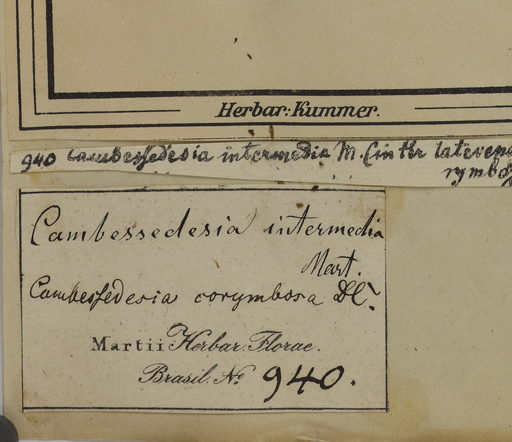 Herbar: Kummer.
940 Cambessedesia intermedia M.
rymbo
Cambessedesia intermedia
Mart.
Cambessedesia corymbosa DC.
Martii Herbar. Florae.
Brasil. No 940.